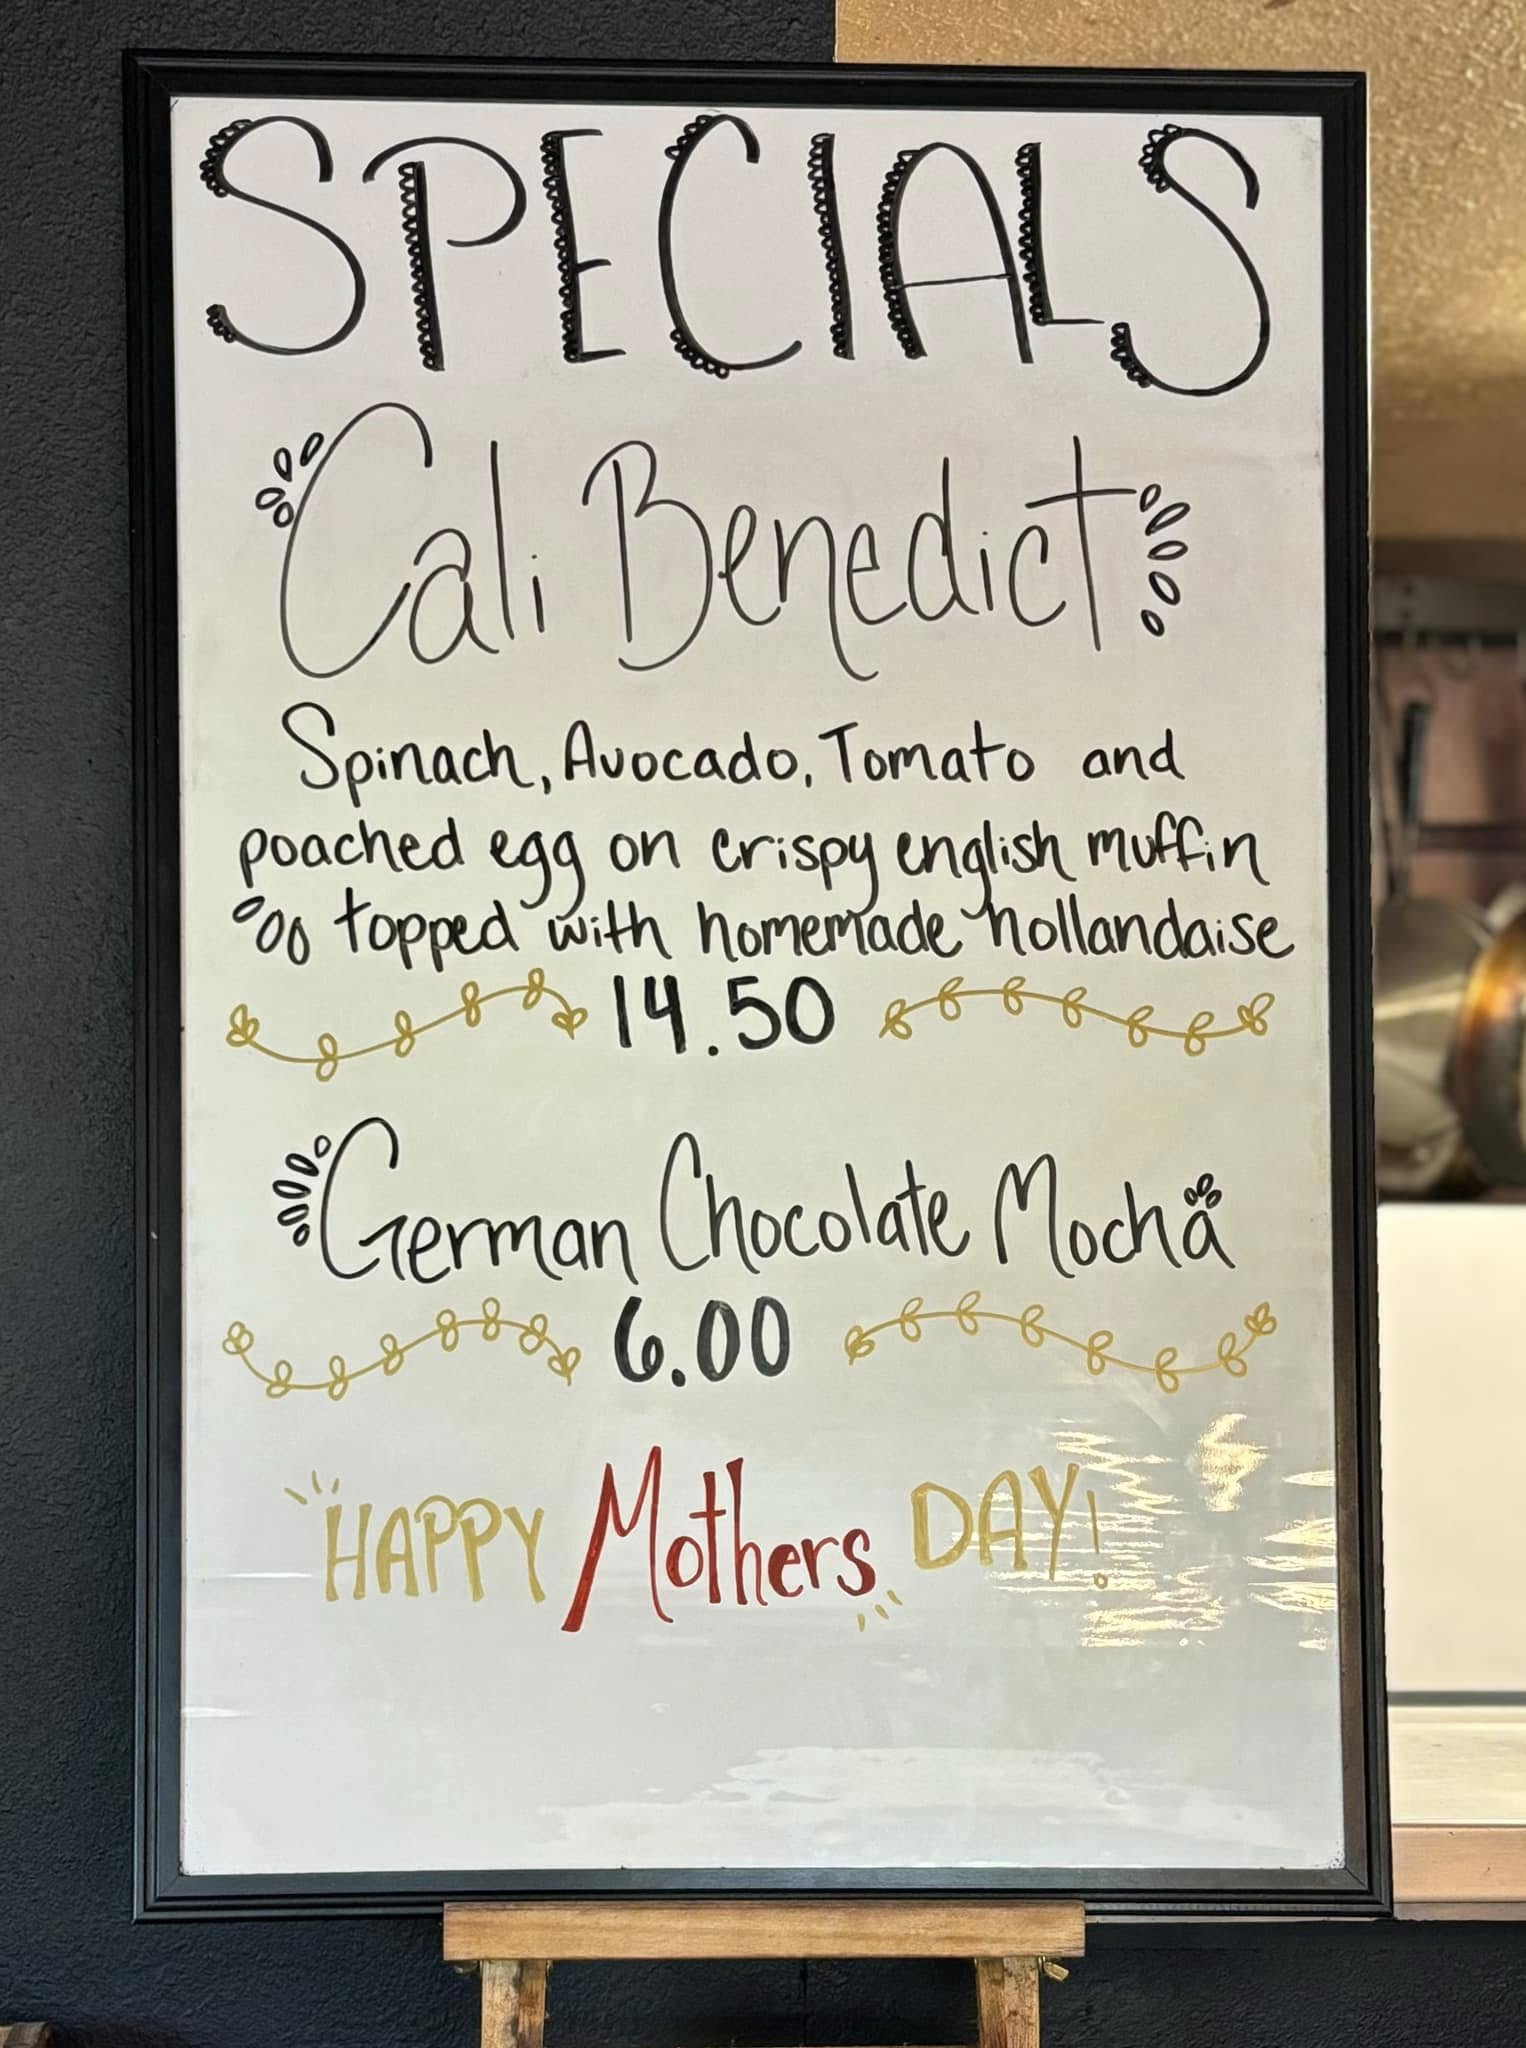 SPECIALS
Cali Benedict
Spinach, Avocado, Tomato and
poached egg on crispy english muffin
topped with homemade hollandaise
14.50
German Chocolate Mocha
6.00
HAPPY Mothers DAY!